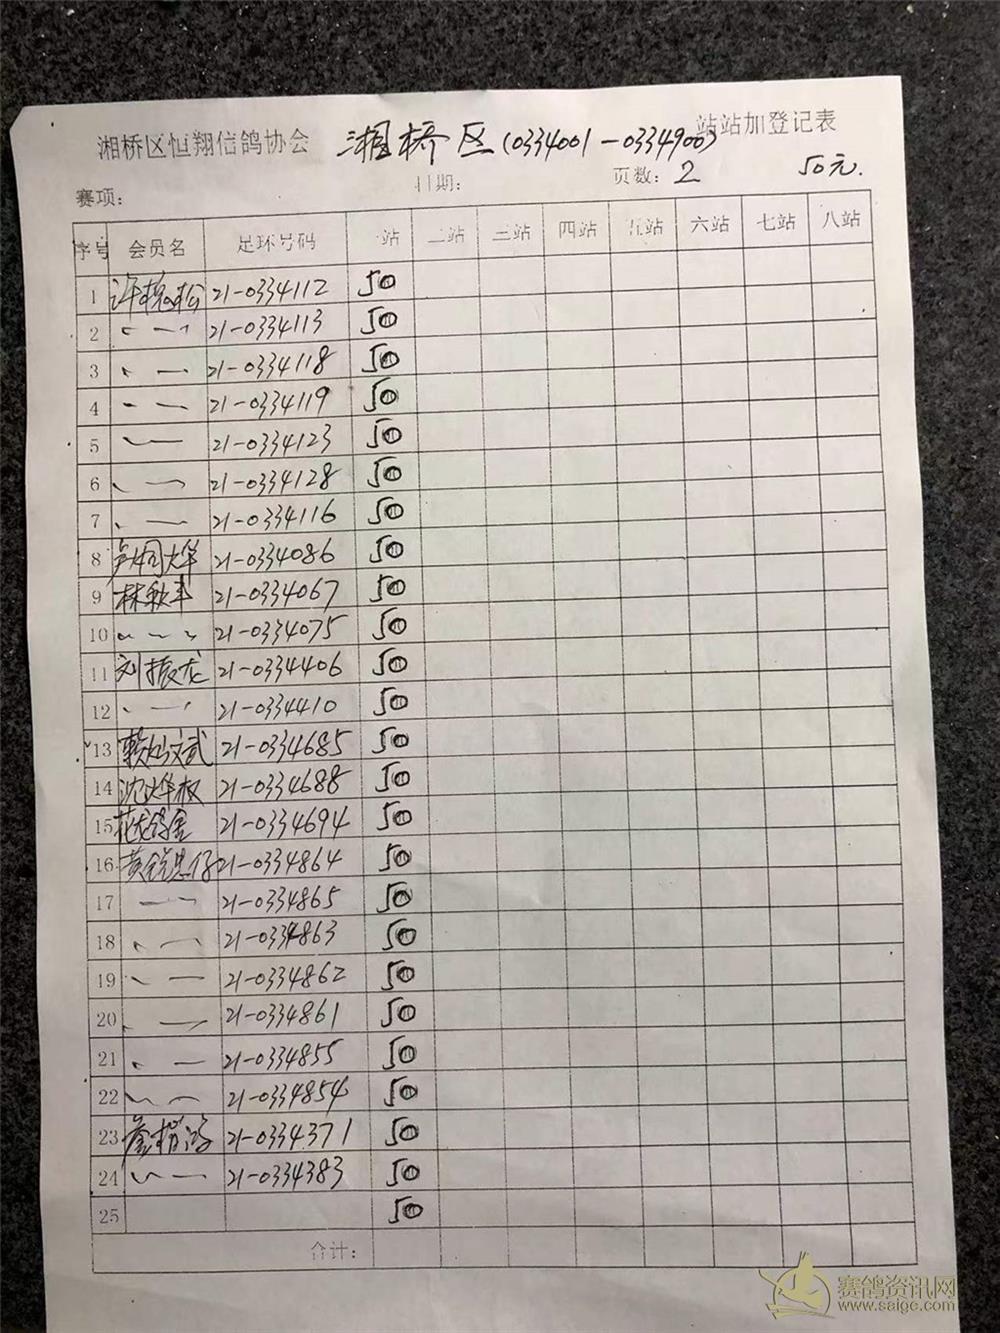 湘桥区恒翔信鸽协会 湘桥区(0334001-0334900) 站站加登记表
赛项: 日期: 页数: 2 50元.
序号 会员名 足环号码 一站 二站 三站 四站 五站 六站 七站 八站
1 21-0334112 50
2 21-0334113 50
3 21-0334118 50
4 21-0334119 50
5 21-0334123 50
6 21-0334128 50
7 21-0334116 50
8 21-0334086 50
9 林秋丰 21-0334067 50
10 21-0334075 50
11 刘振龙 21-0334406 50
12 21-0334410 50
13 21-0334685 50
14 21-0334688 50
15 21-0334694 50
16 21-0334864 50
17 21-0334865 50
18 21-0334863 50
19 21-0334862 50
20 21-0334861 50
21 21-0334855 50
22 21-0334854 50
23 21-0334371 50
24 21-0334383 50
25 50
合计:
赛鸽资讯网
www.saige.com